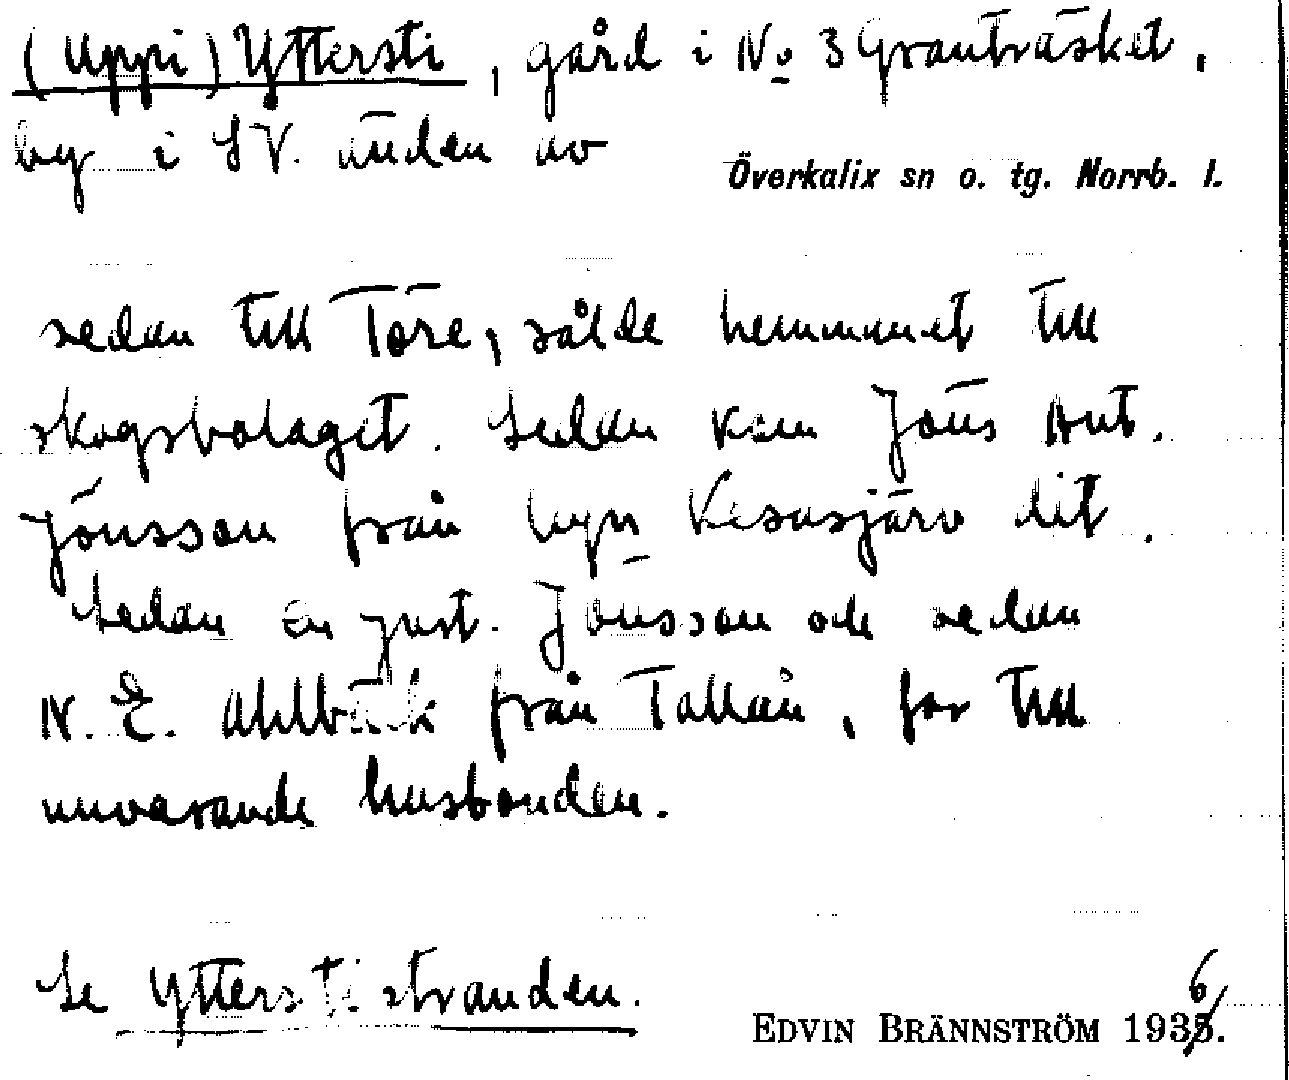 (Uppi) Yttersti, gård i No 3 Granträsket,
by i SV. änden av
Överkalix sn o. tg. Norrb. l.
sedan till Töre, sålde hemmanet till
skogsbolaget. Sedan kom Jöns Ant.
Jönsson från byn Kesasjärv dit.
Sedan en Just. Jönsson och sedan
N. E. Ahlbäck från Tallån, far till
nuvarande husbonden.
Se Ytterstistranden.
6
EDVIN BRÄNNSTRÖM 1935.